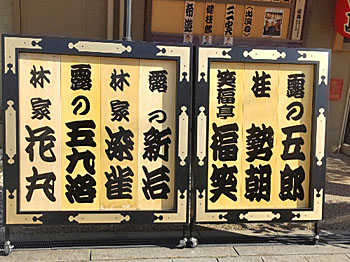 露の五郎
桂 勢朝
笑福亭 福笑
露の新治
林家 染雀
露の五九洛
林家 花丸